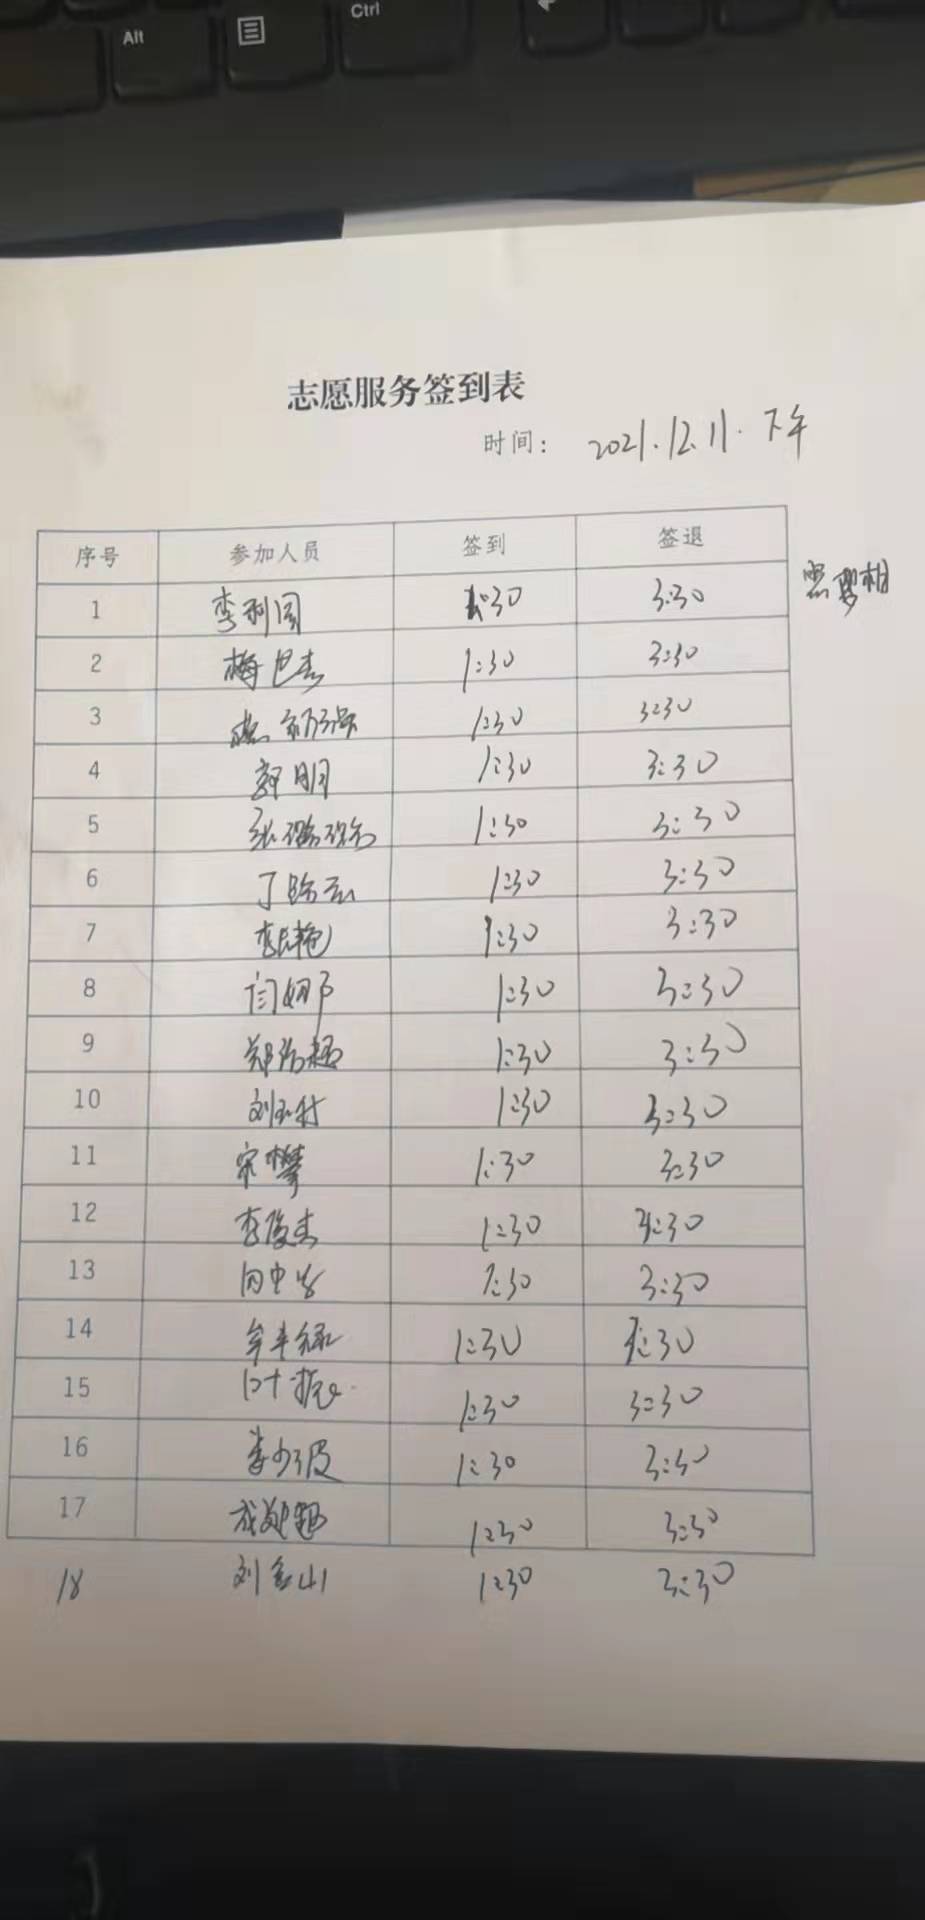 Alt
Ctrl
志愿服务签到表
时间: 2021.12.11.下午
序号 参加人员 签到 签退
1 李利国 1:30 3:30
2 梅 1:30 3:30
3 1:30 3:30
4 郭明 1:30 3:30
5 张璐瑶 1:30 3:30
6 丁 1:30 3:30
7 李艳 1:30 3:30
8 闫娜 1:30 3:30
9 郑 超 1:30 3:30
10 刘玉 1:30 3:30
11 宋攀 1:30 3:30
12 李俊杰 1:30 3:30
13 1:30 3:30
14 牟 1:30 3:30
15 叶振 1:30 3:30
16 娄少波 1:30 3:30
17 成 超 1:30 3:30
18 刘金山 1:30 3:30